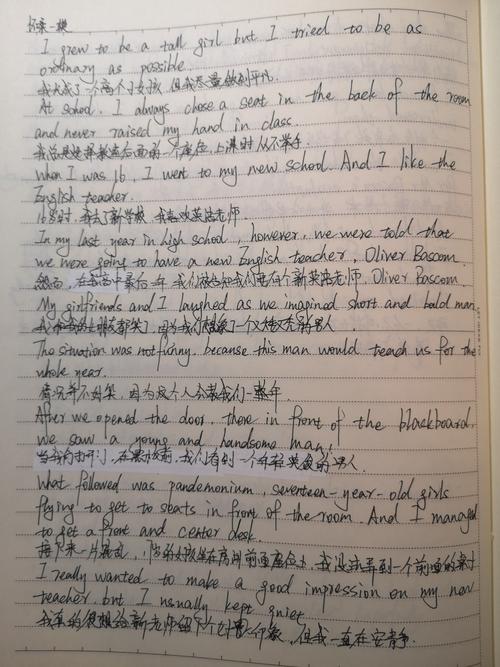 I grew to be a tall girl but I tried to be as
ordinary as possible.
我长成了一个高个子女孩，但我尽量做到平凡.
At school. I always chose a seat in the back of the room
and never raised my hand in class.
我总是选择教室后面的一个座位，上课时从不举手.
When I was 16, I went to my new school. And I like the
English teacher.
16岁时，我去了新学校，我喜欢英语老师.
In my last year in high school, however, we were told that
we were going to have a new English teacher, Oliver Bascom.
然而，在高中最后一年，我们被告知我们要有个新英语老师，Oliver Bascom.
My girlfriends and I laughed as we imagined short and bald man.
我和我的女朋友都笑了，因为我们想象了一个又矮又秃的男人
The situation was not funny. because this man would teach us for the
whole year.
情况并不好笑，因为这个人会教我们一整年.
After we opened the door, there in front of the blackboard,
we saw a young and handsome man!
当我们打开门，在黑板前，我们看到一个年轻英俊的男人.
What followed was pandemonium, seventeen-year-old girls
flying to get to seats in front of the room. And I managed
to get a front and center desk.
接下来一片混乱，17岁的女孩坐在房间前面座位上，我设法弄到一个前面的桌子
I really wanted to make a good impression on my new
teacher but I usually kept quiet
我真的很想给新老师留下个好印象，但我一直在安静.